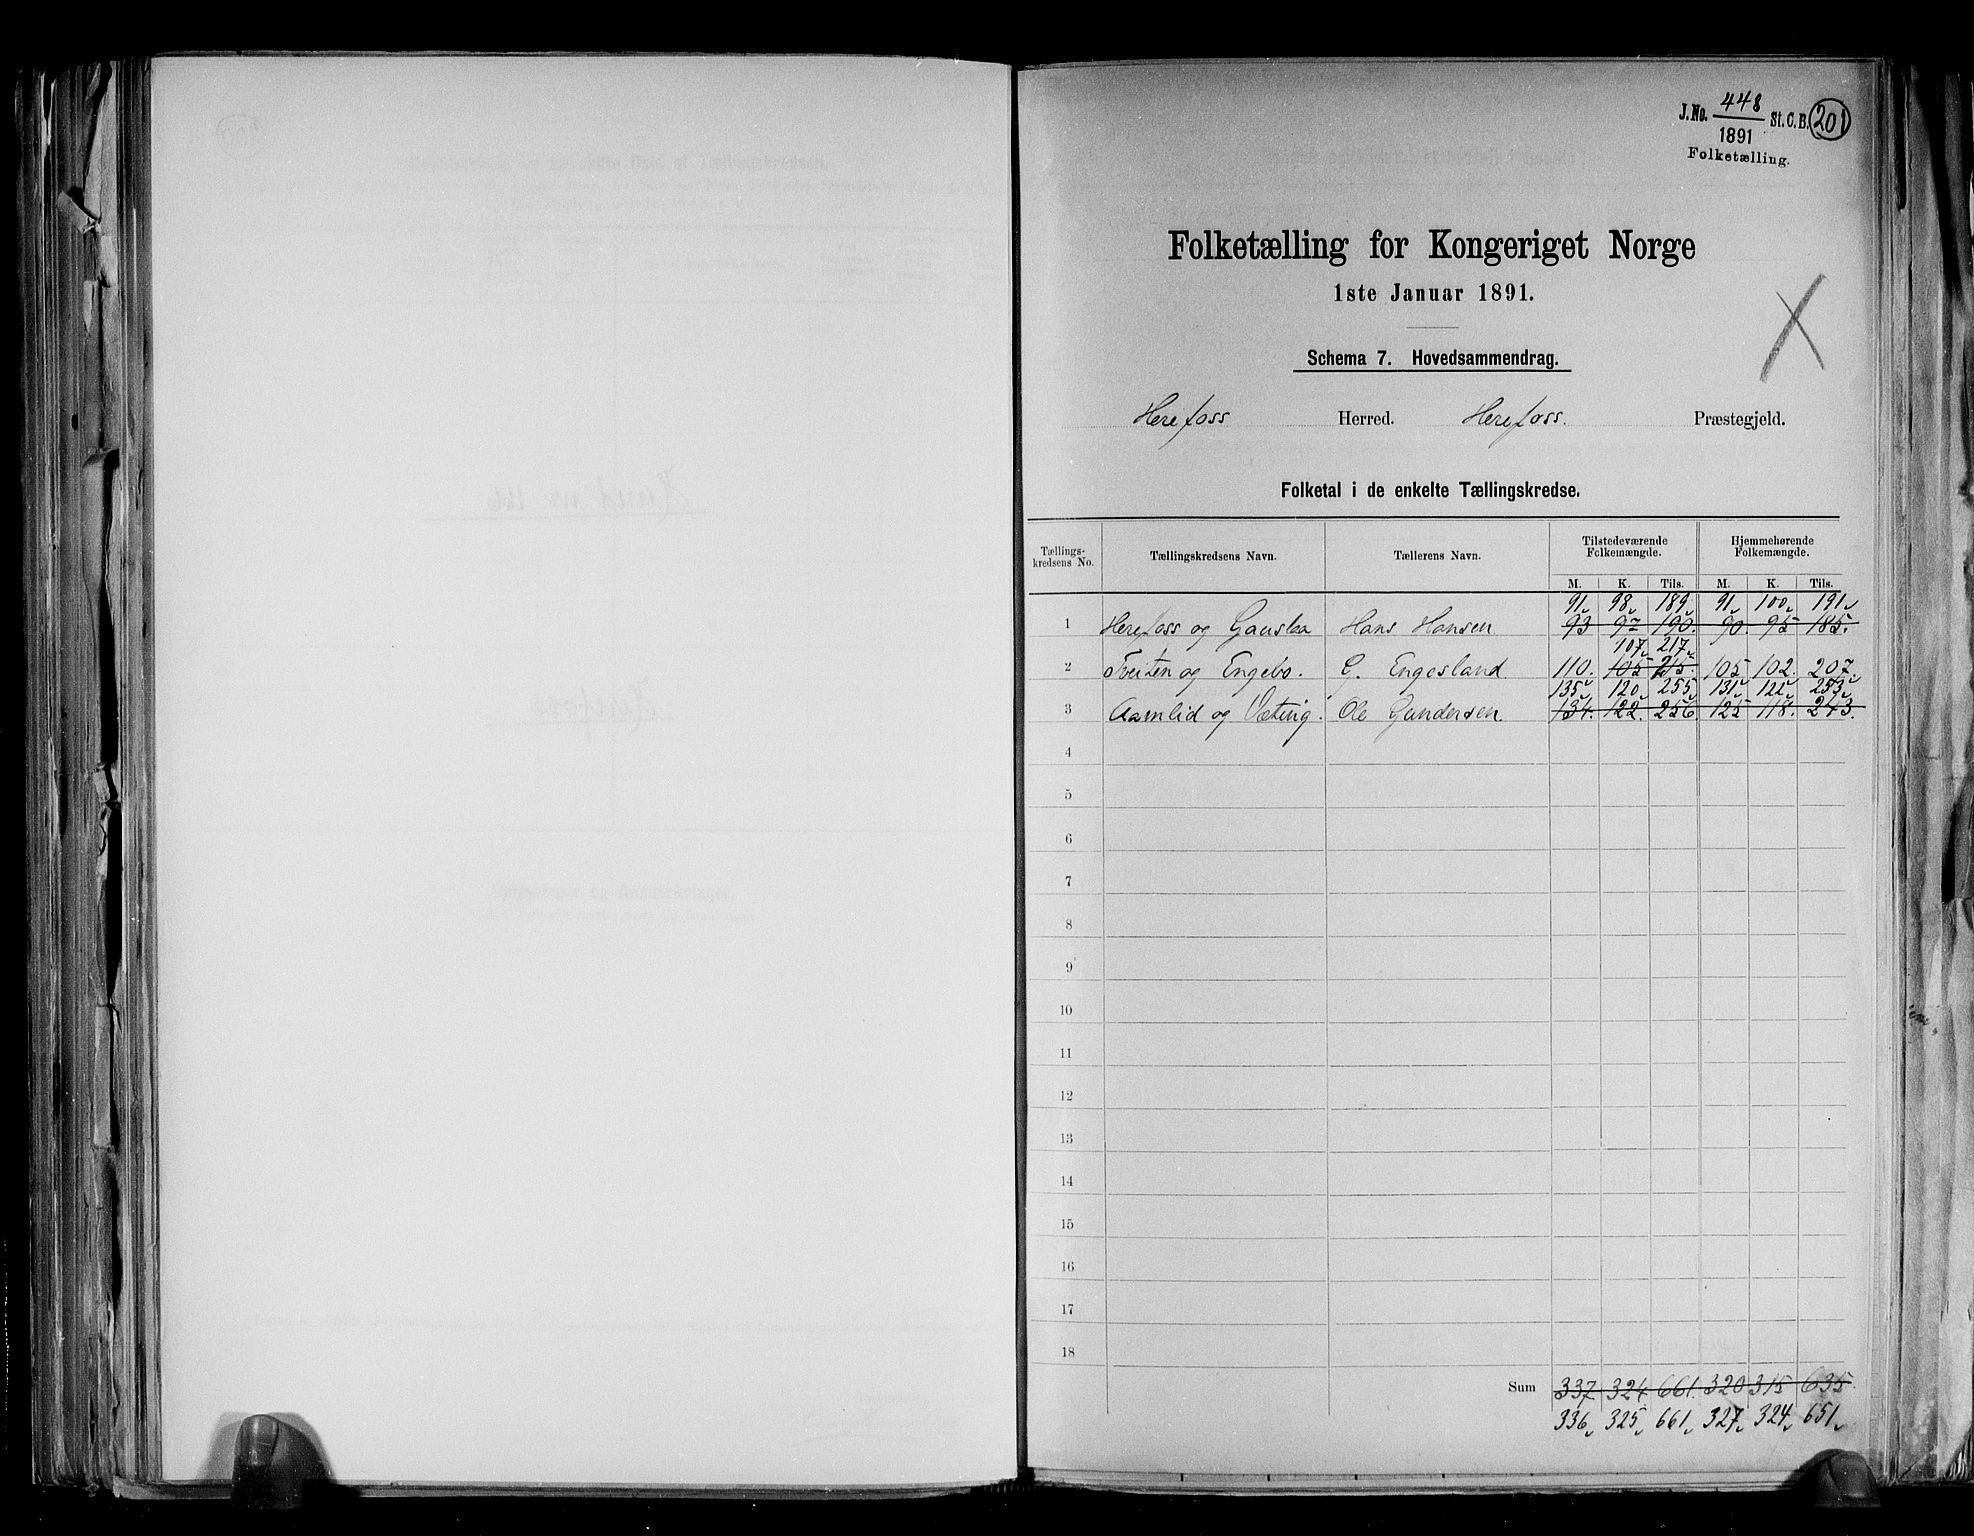 J. No. 448 St. C. B. 201
1891
Folketælling.
Folketælling for Kongeriget Norge
1ste Januar 1891.
Schema 7. Hovedsammendrag.
Herefoss Herred. Herefoss. Præstegjeld.
Folketal i de enkelte Tællingskredse.
Tællings-kredsens No. Tællingskredsens Navn. Tællerens Navn. Tilstedeværende Folkemængde. Hjemmehørende Folkemængde.
M. K. Tils. M. K. Tils.
91 98 189 91 100 191
1 Herefoss og Gauslaa Hans Hansen 93 97 190. 90. 95 185.
107 217
2 Tveiten og Engebo. G. Engesland. 110. 105 215. 105 102. 207.
135 120 255 131 122 253
3 Aamlid og Væting. Ole Gundersen. 134. 122. 256. 125 118. 243.
4
5
6
7
8
9
10
11
12
13
14
15
16
17
18
Sum 337 324 661 320 315 635
336 325 661 327 324 651